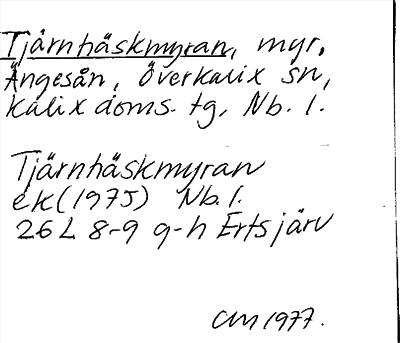 Tjärnhäskmyran, myr,
Ängesån, Överkalix sn,
Kalix doms. tg, Nb. l.
Tjärnhäskmyran
ek (1975) Nb. l.
26 L 8-9 g-h Ertsjärv
CM 1977.